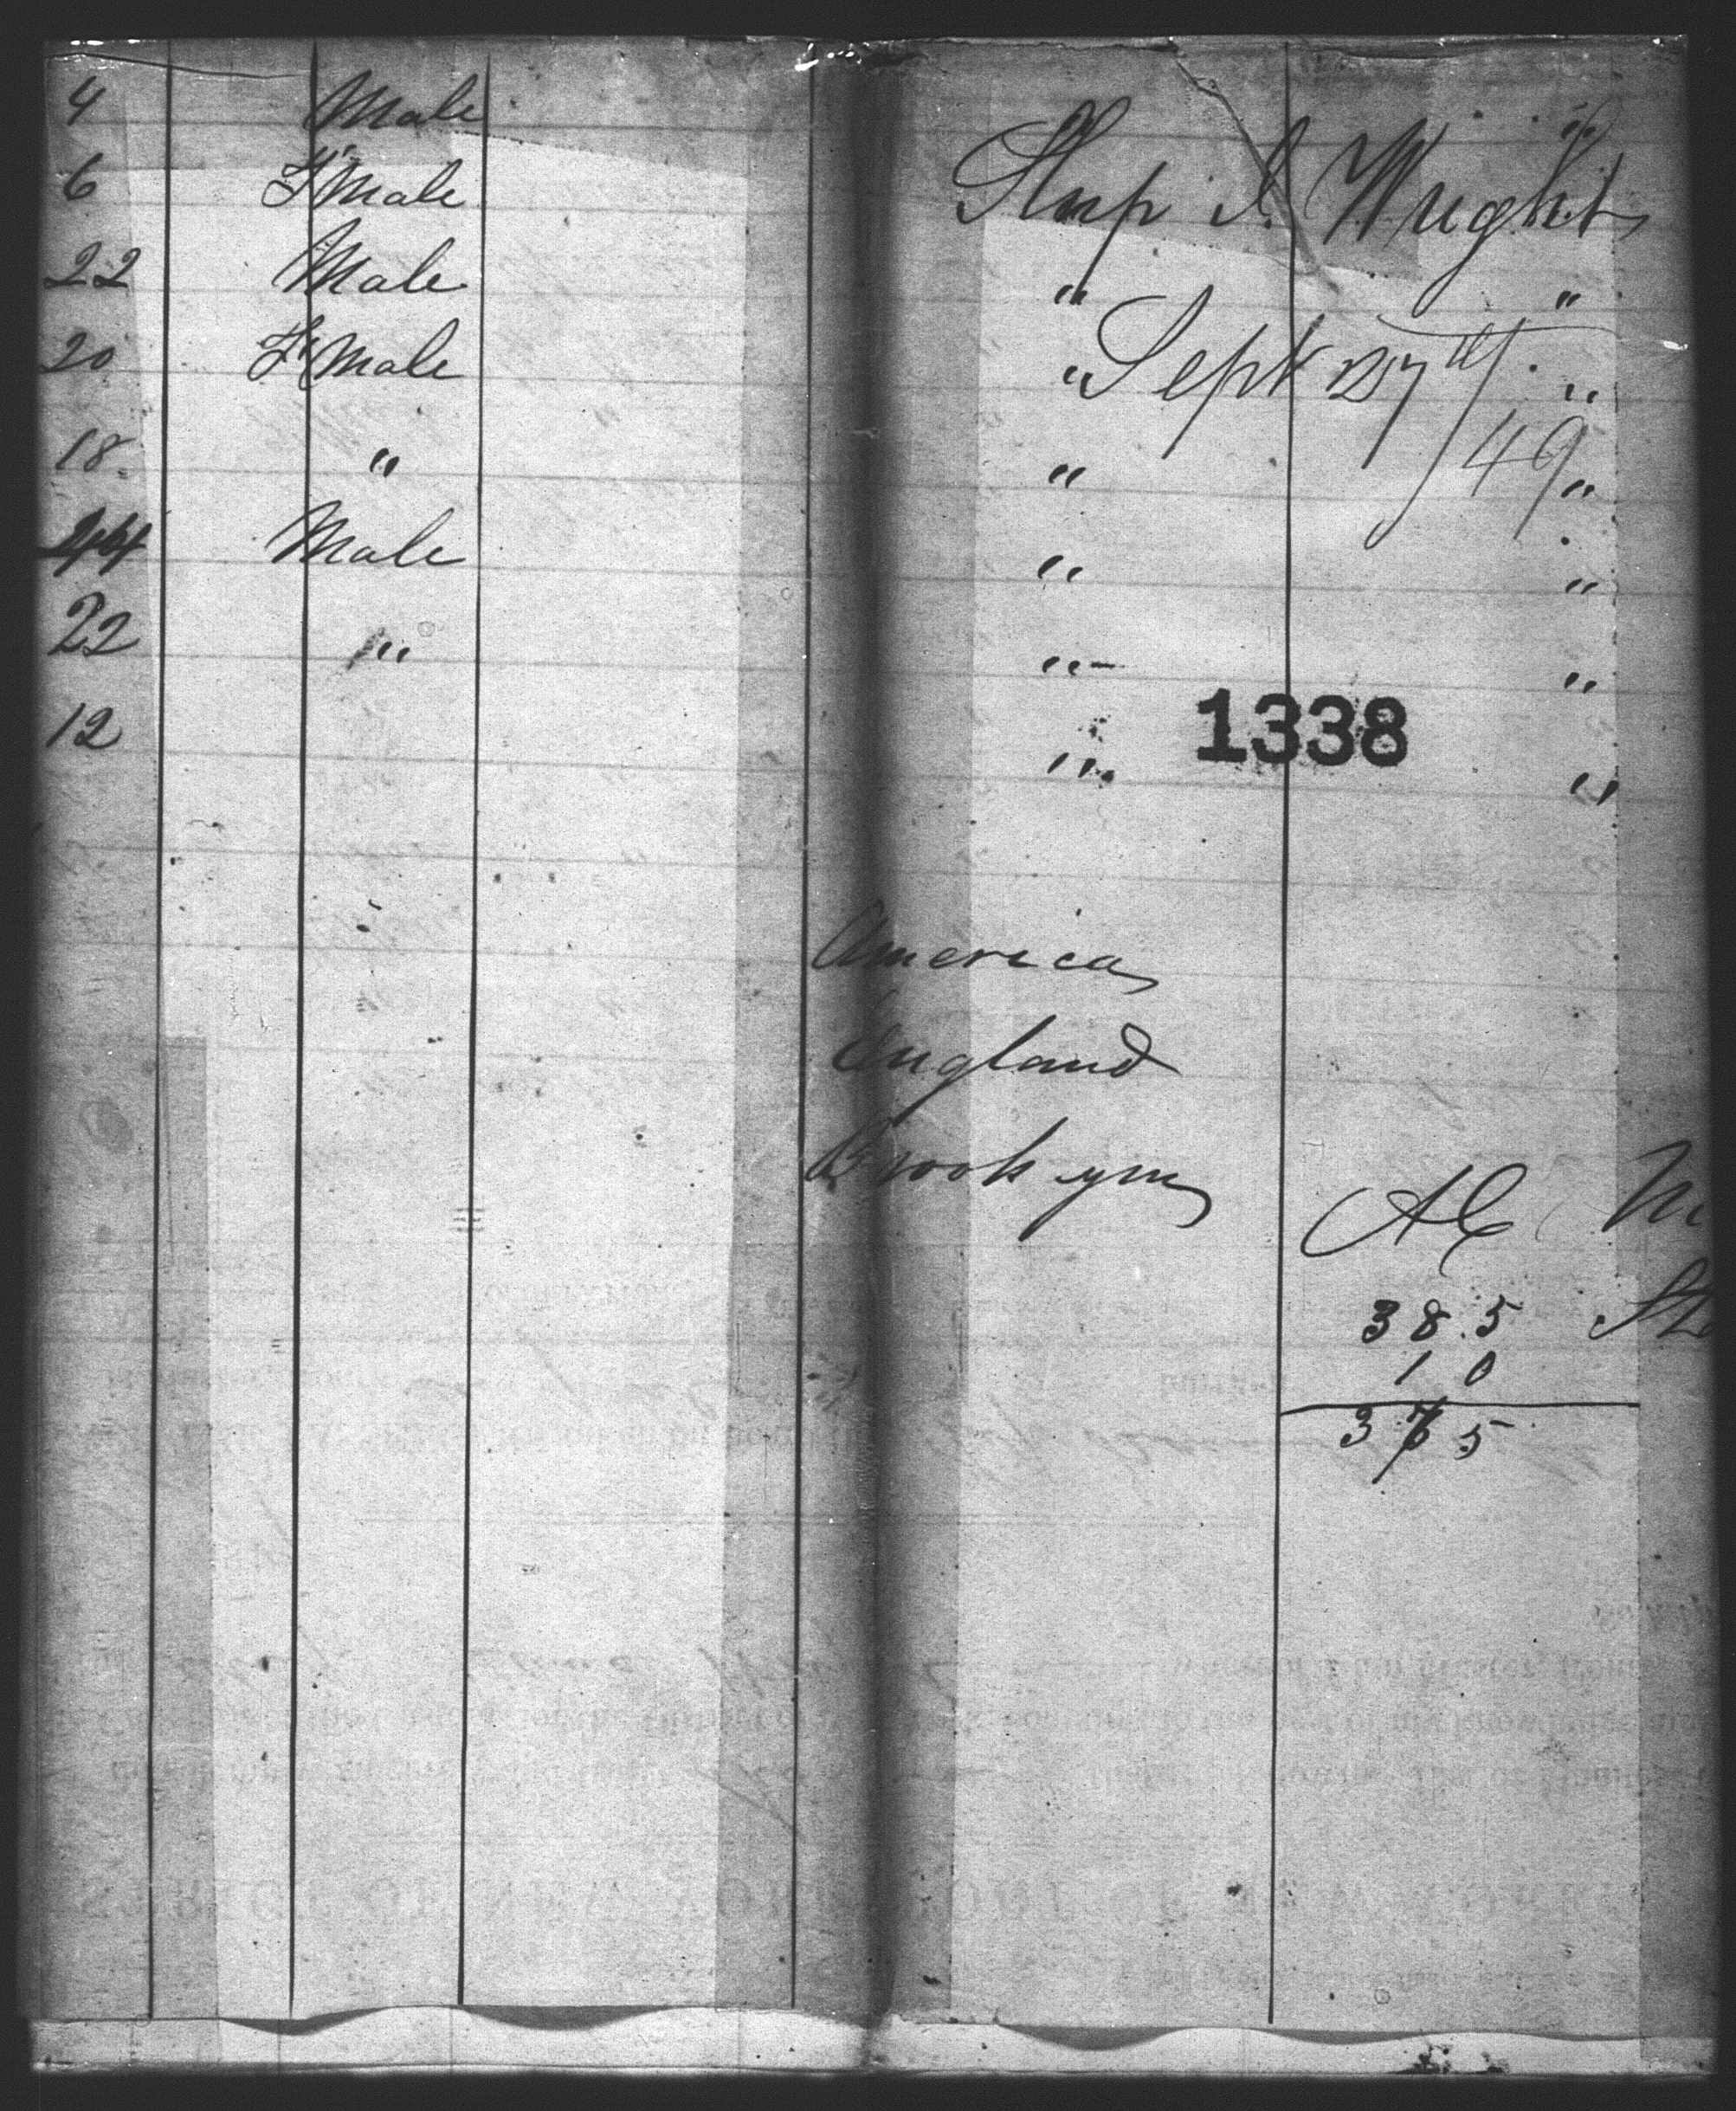 4 Male
6 F Male
22 Male
20 F Male
18 "
44 Male
22 "
12
Ship I. Wright
" "
" Sept 27th "
" /49 "
" "
" "
1338
" "
America
England
Brooklyn
AC
385
10
375